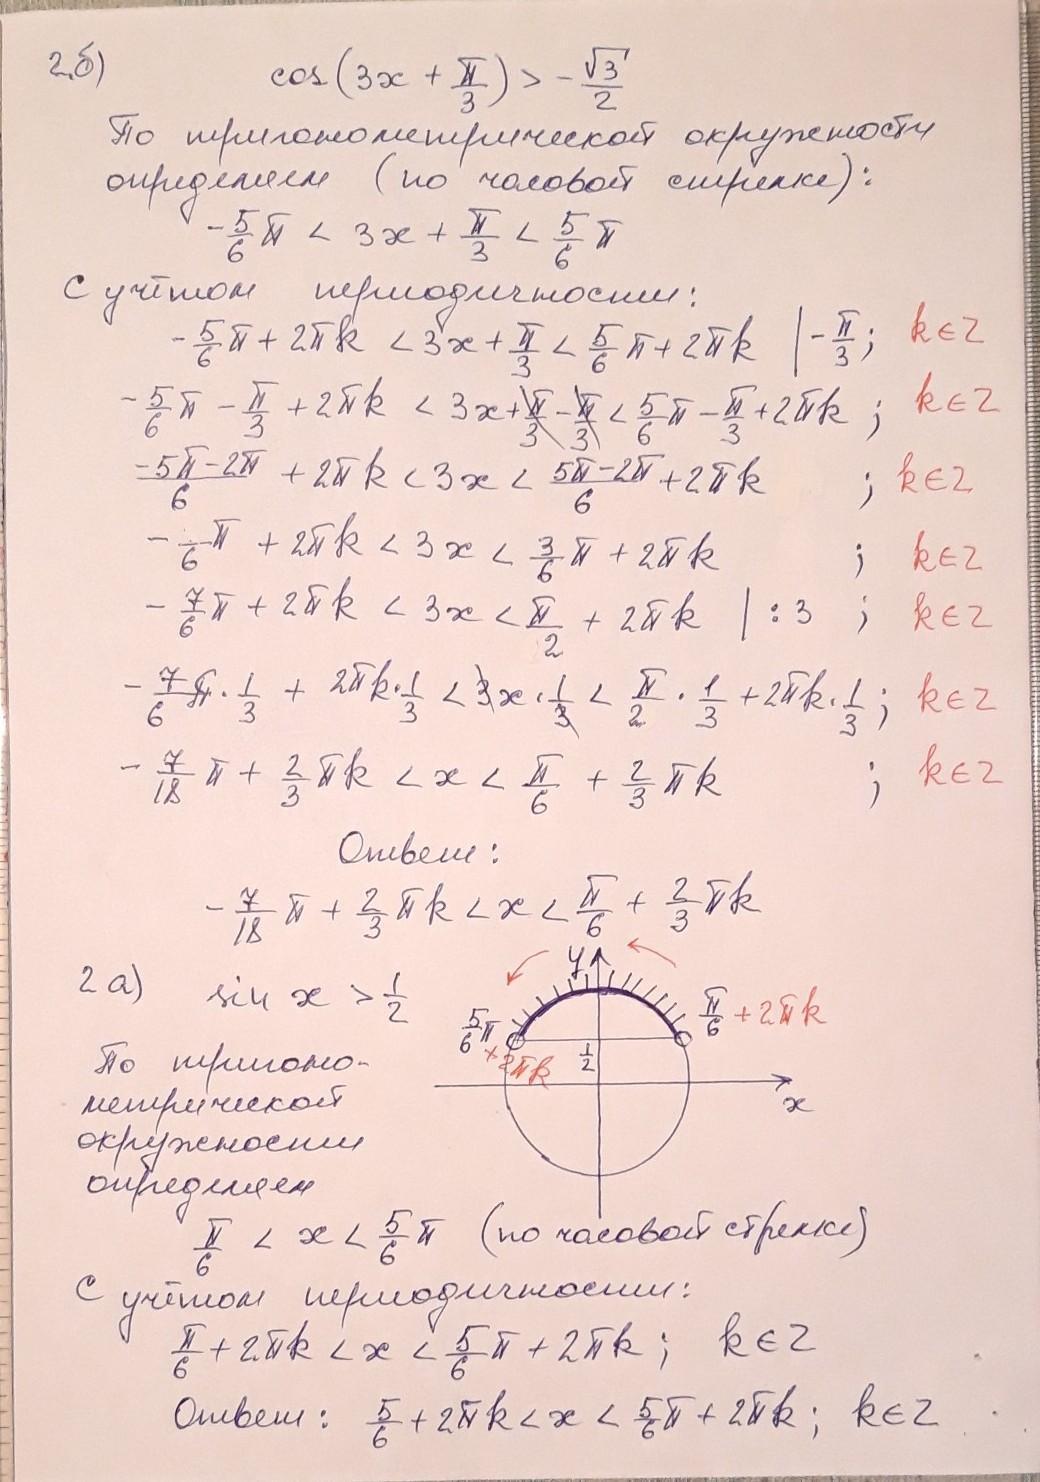 2.б) cos(3x + π/3) > -√3/2
По тригонометрической окружности
определяем (по часовой стрелке):
-5/6 π < 3x + π/3 < 5/6 π
С учётом периодичности:
-5/6 π + 2πk < 3x + π/3 < 5/6 π + 2πk | -π/3; k∈Z
-5/6 π - π/3 + 2πk < 3x + π/3 - π/3 < 5/6 π - π/3 + 2πk; k∈Z
(-5π-2π)/6 + 2πk < 3x < (5π-2π)/6 + 2πk ; k∈Z
- /6 π + 2πk < 3x < 3/6 π + 2πk ; k∈Z
-7/6 π + 2πk < 3x < π/2 + 2πk | :3 ; k∈Z
-7/6 π · 1/3 + 2πk · 1/3 < 3x · 1/3 < π/2 · 1/3 + 2πk · 1/3; k∈Z
-7/18 π + 2/3 πk < x < π/6 + 2/3 πk ; k∈Z
Ответ:
-7/18 π + 2/3 πk < x < π/6 + 2/3 πk
2а) sin x > 1/2
y
5/6 π + 2πk
π/6 + 2πk
1/2
x
По тригоно-
метрической
окружности
определяем
π/6 < x < 5/6 π (по часовой стрелке)
С учётом периодичности:
π/6 + 2πk < x < 5/6 π + 2πk; k∈Z
Ответ: 5/6 + 2πk < x < 5/6 π + 2πk; k∈Z